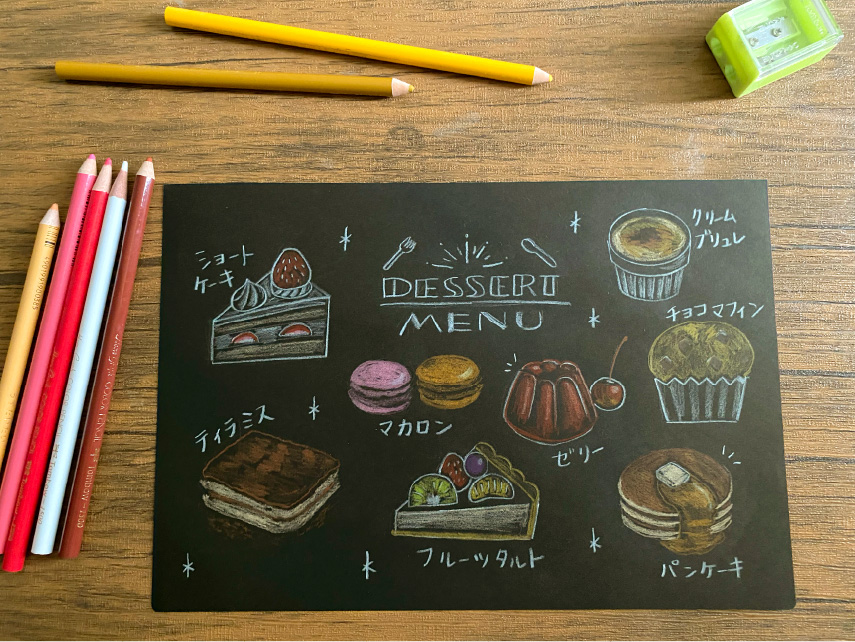 DESSERT
MENU
ショート
ケーキ
クリーム
ブリュレ
チョコマフィン
マカロン
ゼリー
ティラミス
フルーツタルト
パンケーキ